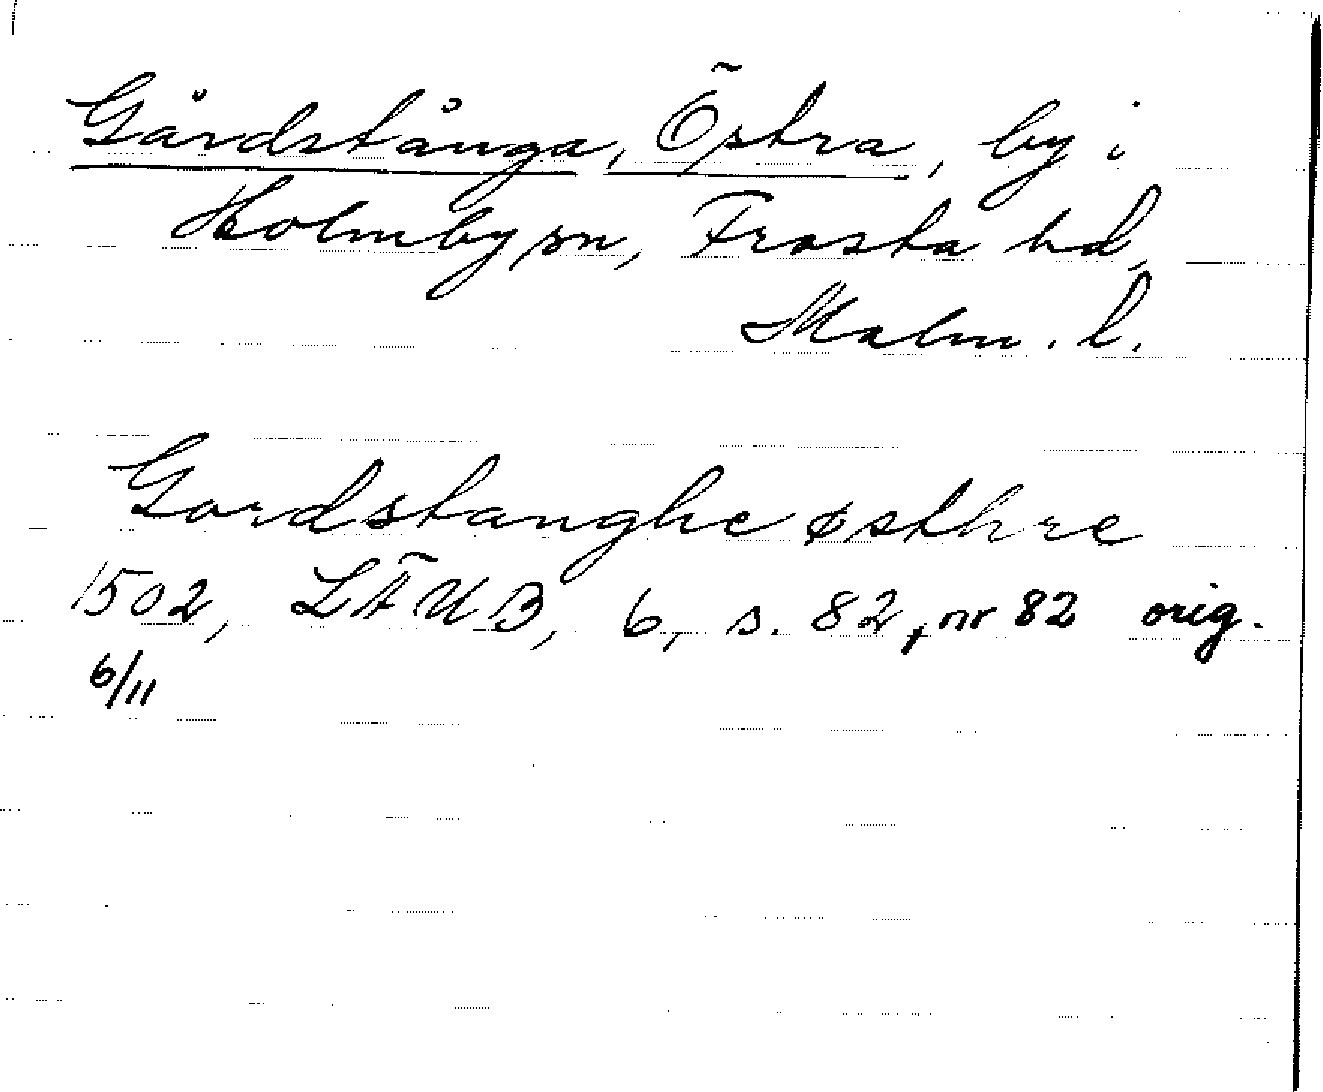 Gårdstånga, Östra, by i
Holmby sn, Frosta hd,
Malm. l.
Gordstanghe østhre
1502, LÄUB, 6, s. 82, nr 82 orig.
6/11